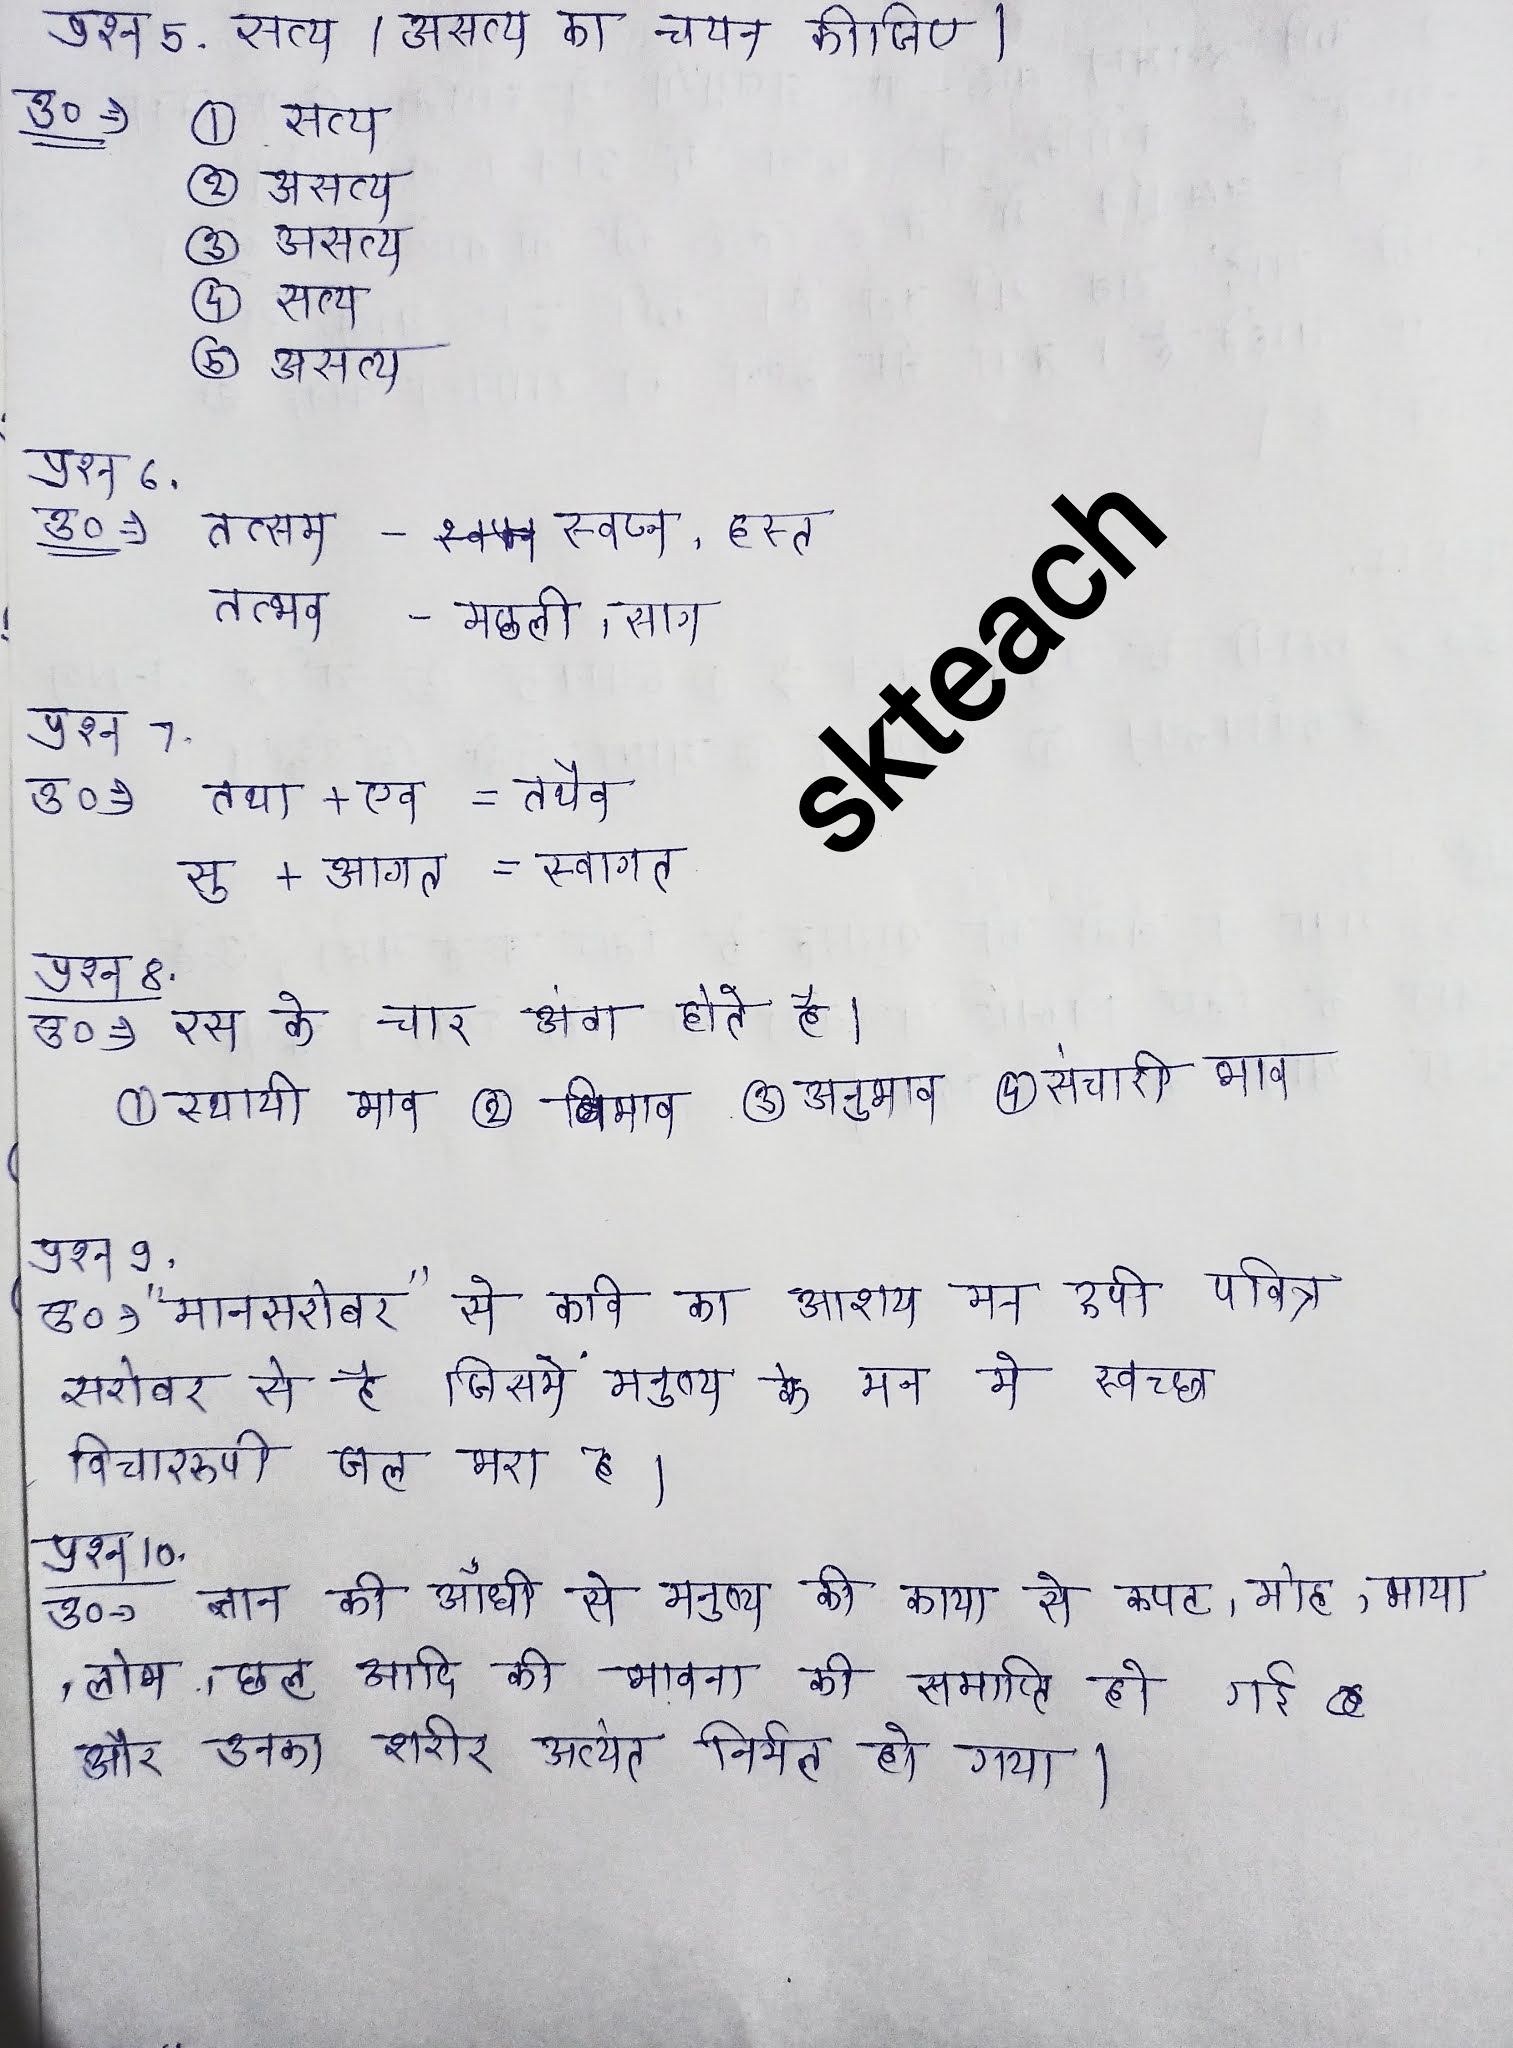 प्रश्न 5. सत्य / असत्य का चयन कीजिए |
उ० ⇒ ① सत्य
② असत्य
③ असत्य
④ सत्य
⑤ असत्य
प्रश्न 6.
उ० ⇒ तत्सम - स्वप्न, हस्त
तत्भव - मछली, साग
skteach
प्रश्न 7.
उ० ⇒ तथा + एव = तथैव
सु + आगत = स्वागत
प्रश्न 8.
उ० ⇒ रस के चार अंग होते है |
① स्थायी भाव ② विभाव ③ अनुभाव ④ संचारी भाव
प्रश्न 9.
उ० ⇒ "मानसरोवर" से कवि का आशय मन रुपी पवित्र
सरोवर से है जिसमें मनुष्य के मन मे स्वच्छ
विचाररुपी जल भरा है |
प्रश्न 10.
उ० → ज्ञान की आँधी से मनुष्य की काया से कपट, मोह, माया
, लोभ, छल आदि की भावना की समाप्ति हो गई
और उनका शरीर अत्यंत निर्मल हो गया |